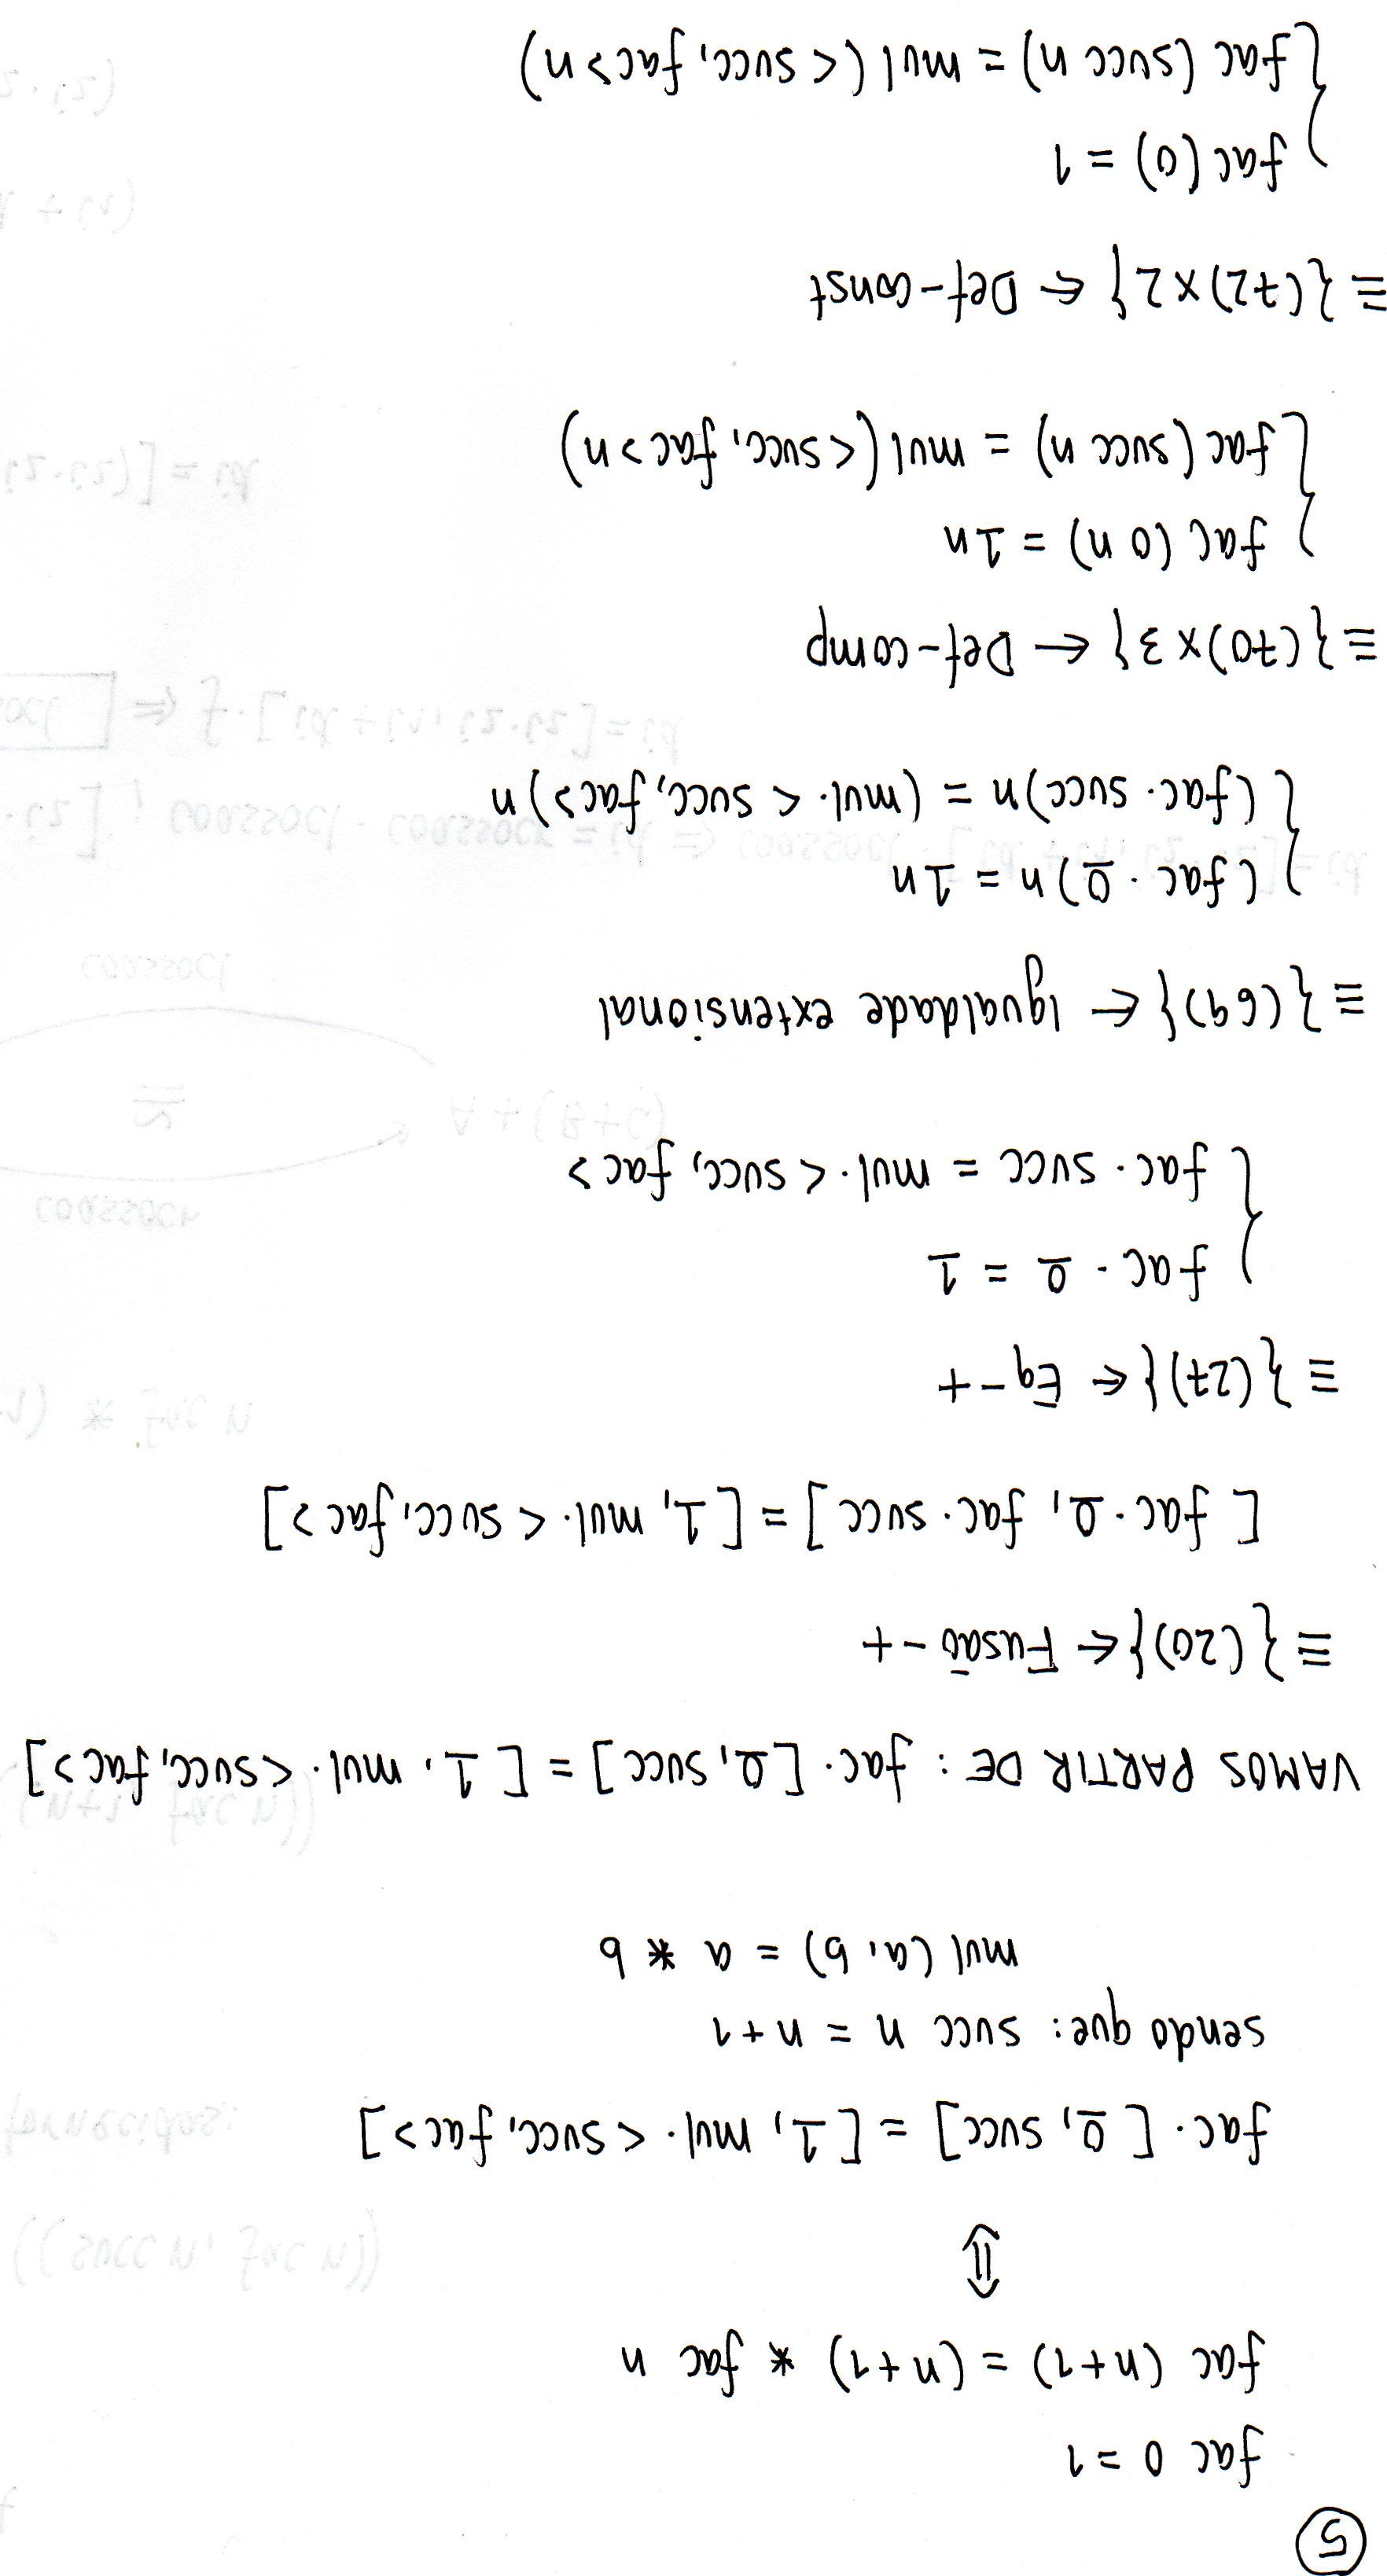 5
fac 0 = 1
fac (n+1) = (n+1) * fac n
⇕
fac · [0̲, succ] = [1̲, mul · <succ, fac>]
sendo que: succ n = n+1
mul (a, b) = a * b
VAMOS PARTIR DE: fac · [0̲, succ] = [1̲, mul · <succ, fac>]
≡ {(20)} ← Fusão-+
[fac · 0̲, fac · succ] = [1̲, mul · <succ, fac>]
≡ {(27)} ← Eq-+
fac · 0̲ = 1̲
fac · succ = mul · <succ, fac>
≡ {(69)} ← Igualdade extensional
(fac · 0̲) n = 1̲ n
(fac · succ) n = (mul · <succ, fac>) n
≡ {(70)x3} ← Def-comp
fac (0 n) = 1̲ n
fac (succ n) = mul (<succ, fac> n)
≡ {(72)x2} ← Def-const
fac (0) = 1
fac (succ n) = mul (<succ, fac> n)